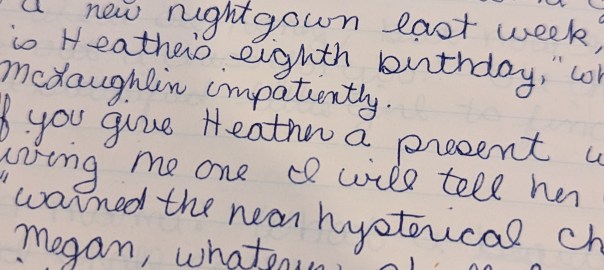 a new nightgown last week,
is Heather's eighth birthday," wh
McLaughlin impatiently.
f you give Heather a present w
iving me one I will tell her
"warned the near hysterical ch
Megan,